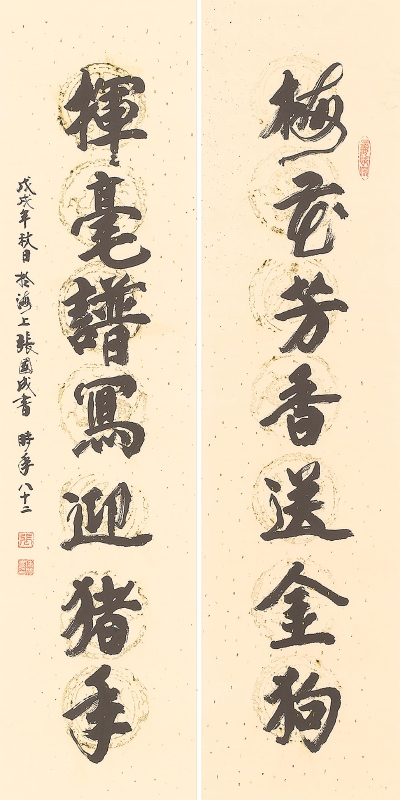 梅花芳香送金狗
揮毫譜寫迎猪年
戊戌年秋日於海上張國成書時年八十二